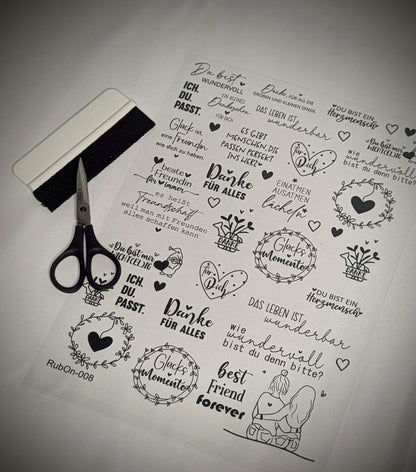 Du bist
WUNDERVOLL
Danke, FÜR ALL DIE
GROßEN UND KLEINEN DINGE
DU BIST EIN
Herzmensch
ICH.
DU.
PASST.
EIN KLEINES
Dankeschön
FÜR DICH
DAS LEBEN IST
wunderbar
Glück ist
eine Freundin
wie dich zu haben.
ES GIBT
MENSCHEN, DIE
PASSEN PERFEKT
INS HERZ.
für
Dich
Du bist mir
WICHTEL(IG)
wie
wundervoll
bist du denn bitte?
beste
Freundin
für immer
Danke
FÜR ALLES
EINATMEN
AUSATMEN
lächeln
es heißt
Freundschaft
weil man mit Freunden
alles schaffen kann
DANKE
Glücks
Momente
DANKE
Du bist mir
WICHTEL(IG)
für
Dich
DU BIST EIN
Herzmensch
ICH.
DU.
PASST.
Danke
FÜR ALLES
DAS LEBEN IST
wunderbar
wie
wundervoll
bist du denn bitte?
Glücks
Momente
best
Friend
forever
RubOn-008